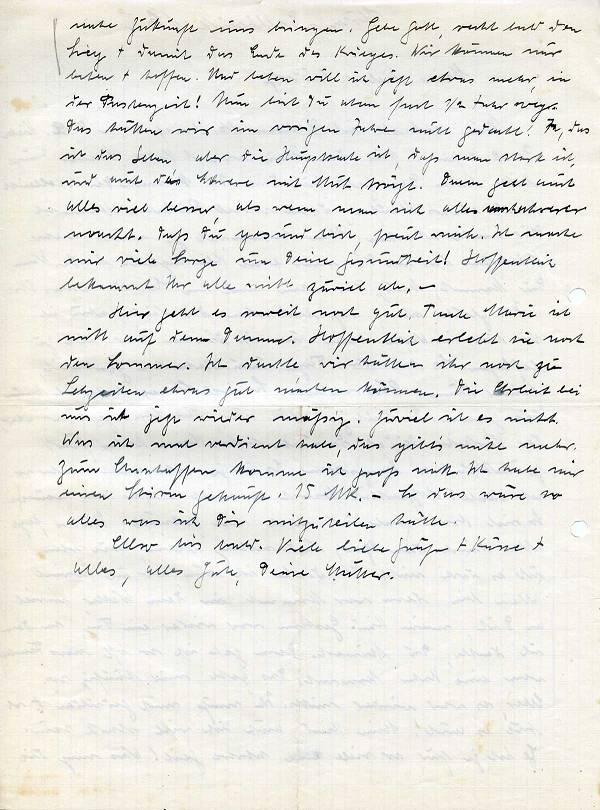 Zukunft uns bringen. Gebe Gott, recht bald den
Sieg + damit das Ende des Krieges. Wir können nur
beten + hoffen. Und beten will ich jetzt etwas mehr, in
der Fastenzeit! Nun bist Du eben fast 1/2 Jahr weg.
Das hätten wir im vorigen Jahre nicht gedacht! Ja, das
ist das Leben aber die Hauptsache ist, daß man stark ist,
und auch das Schwere mit Mut trägt. Dann geht auch
alles viel besser, als wenn man sich alles schwerer
macht. Daß Du gesund bist, freut mich. Ich mache
mir viele Sorge um Deine Gesundheit! Hoffentlich
bekommt Ihr alle nicht zuviel ab. –
Hier geht es soweit noch gut, Tante Marie ist
nicht auf dem Damm. Hoffentlich erlebt sie noch
den Sommer. Ich dachte wir hätten ihr noch zu
Lebzeiten etwas gut machen können. Die Arbeit bei
uns ist jetzt wieder mäßig. Zuviel ist es nicht.
Was ich mal verdient habe, das gibt's nicht mehr.
Zum Anschaffen komme ich groß nicht. Ich habe nur
einen Schirm gekauft. 15 Mk. – So das wäre so
alles was ich Dir mitzuteilen hätte.
Also bis bald. Viele liebe Grüße + Küsse +
alles, alles Gute, Deine Mutter.